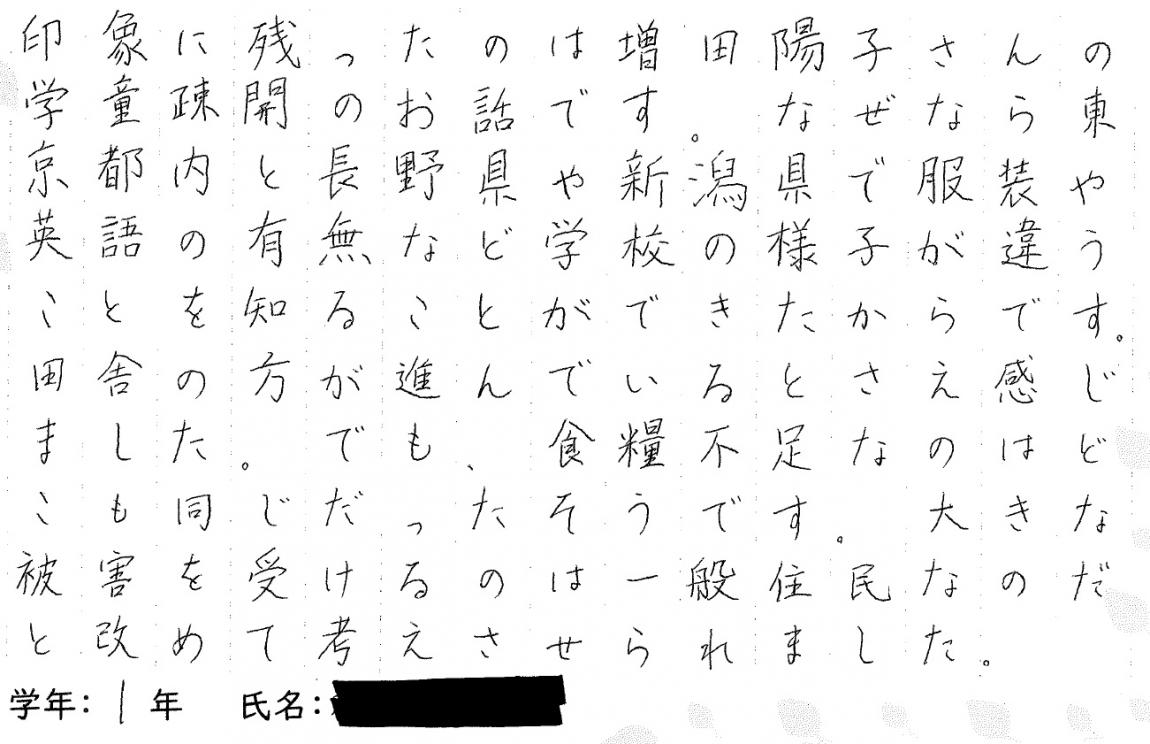 印象に残ったのは増田陽子さんの
学童疎開のお話です。なぜなら東
京都内と長野県や新潟県で服装や
英語の有無など学校の様子が違う
ことを知ることができたからです。
田舎の方が進んでいるとさえ感じ
ました。でも、食糧不足なのはど
こも同じだったそうです。大きな
被害を受けるのは一般住民なのだ
と改めて考えさせられました。
学年：1年　氏名：